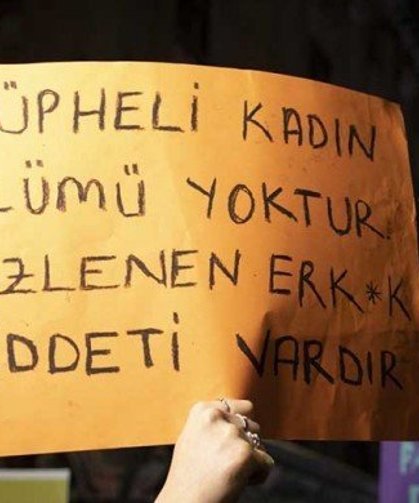 ÜPHELİ KADIN
LÜMÜ YOKTUR.
ZLENEN ERK*K
DDETİ VARDIR